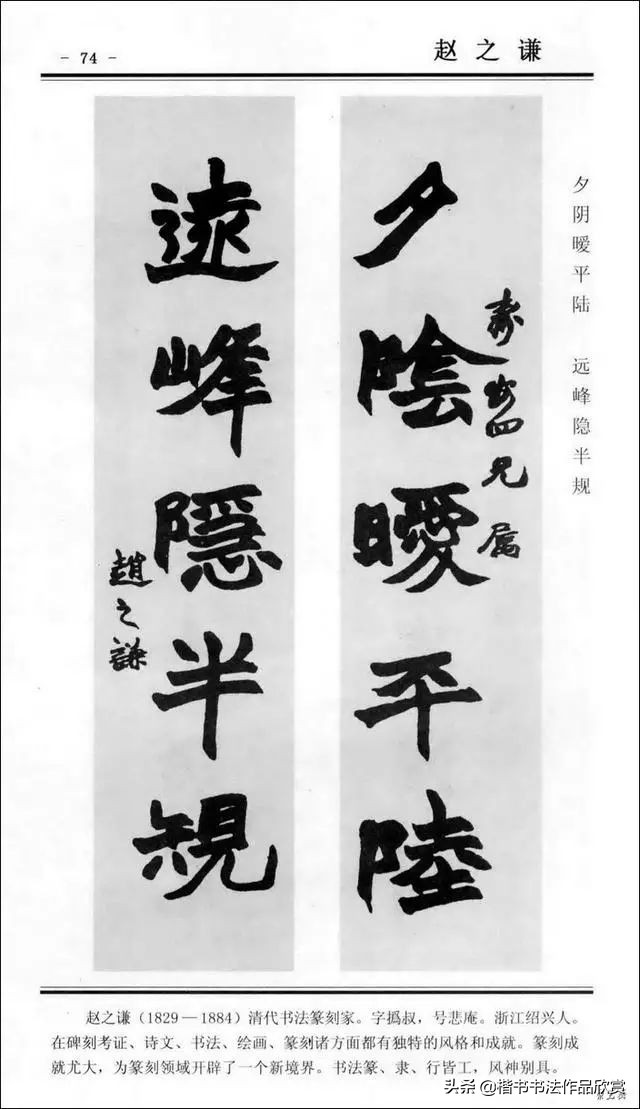 - 74 -
赵之谦
夕阴暧平陆 远峰隐半规
夕陰曖平陸
四兄属
遠峰隱半規
趙之謙
赵之谦（1829—1884）清代书法篆刻家。字撝叔，号悲庵。浙江绍兴人。
在碑刻考证、诗文、书法、绘画、篆刻诸方面都有独特的风格和成就。篆刻成
就尤大，为篆刻领域开辟了一个新境界。书法篆、隶、行皆工，风神别具。
头条@楷书书法作品欣赏